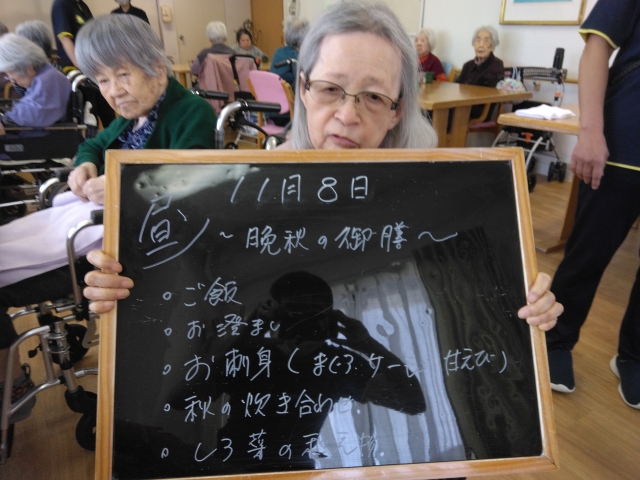 11月8日
昼
~晩秋の御膳~
○ご飯
○お澄まし
○お刺身(まぐろ、サーモン 甘えび)
○秋の炊き合わせ
○しろ菜の和え物